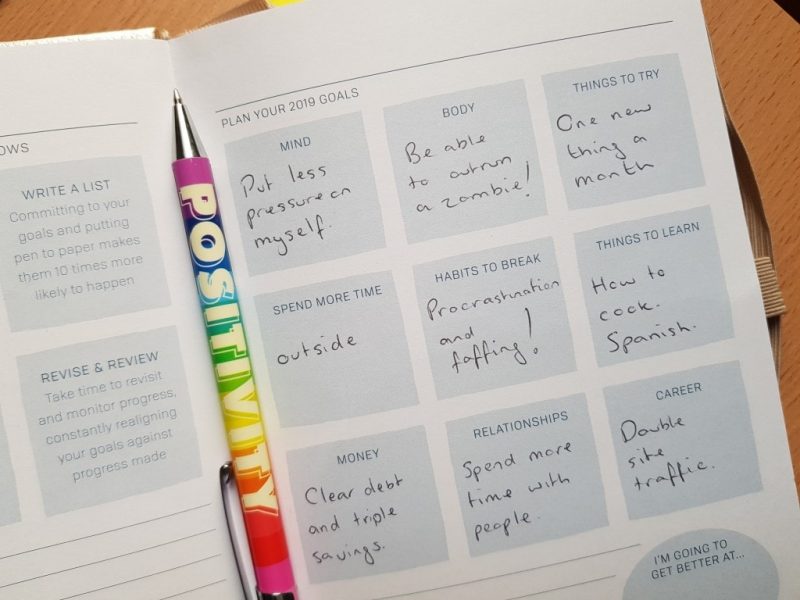 OWS
WRITE A LIST
Committing to your
goals and putting
pen to paper makes
them 10 times more
likely to happen
REVISE & REVIEW
Take time to revisit
and monitor progress,
constantly realigning
your goals against
progress made
POSITIVITY
PLAN YOUR 2019 GOALS
MIND
Put less
pressure on
myself.
BODY
Be able
to outrun
a zombie!
THINGS TO TRY
One new
thing a
month
SPEND MORE TIME
outside
HABITS TO BREAK
Procrastination
and
faffing!
THINGS TO LEARN
How to
cook.
Spanish.
MONEY
Clear debt
and triple
savings.
RELATIONSHIPS
Spend more
time with
people.
CAREER
Double
site
traffic.
I'M GOING TO
GET BETTER AT...